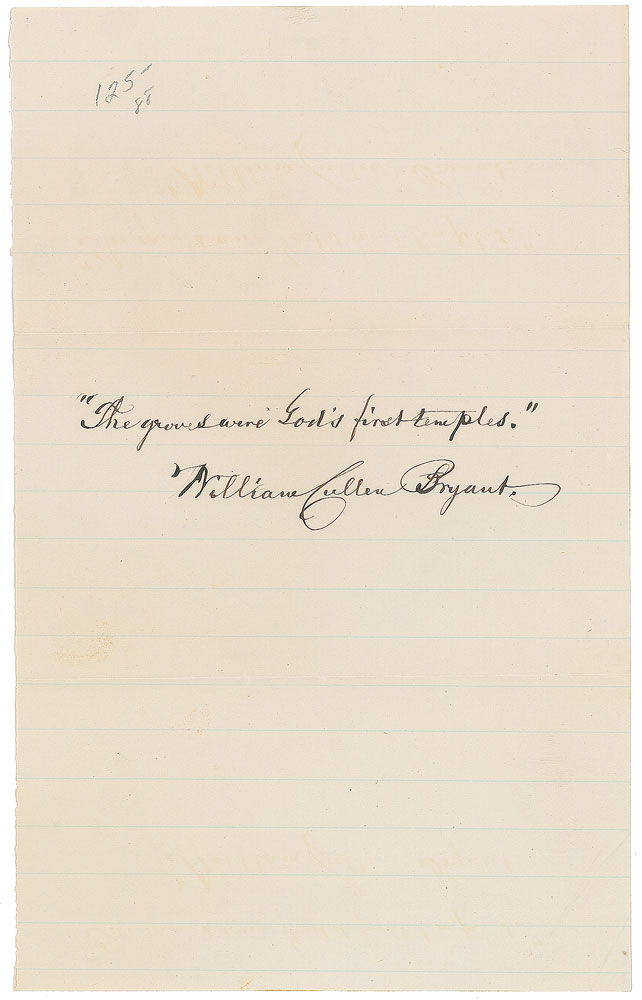 125
88
"The groves were God's first temples."
William Cullen Bryant.